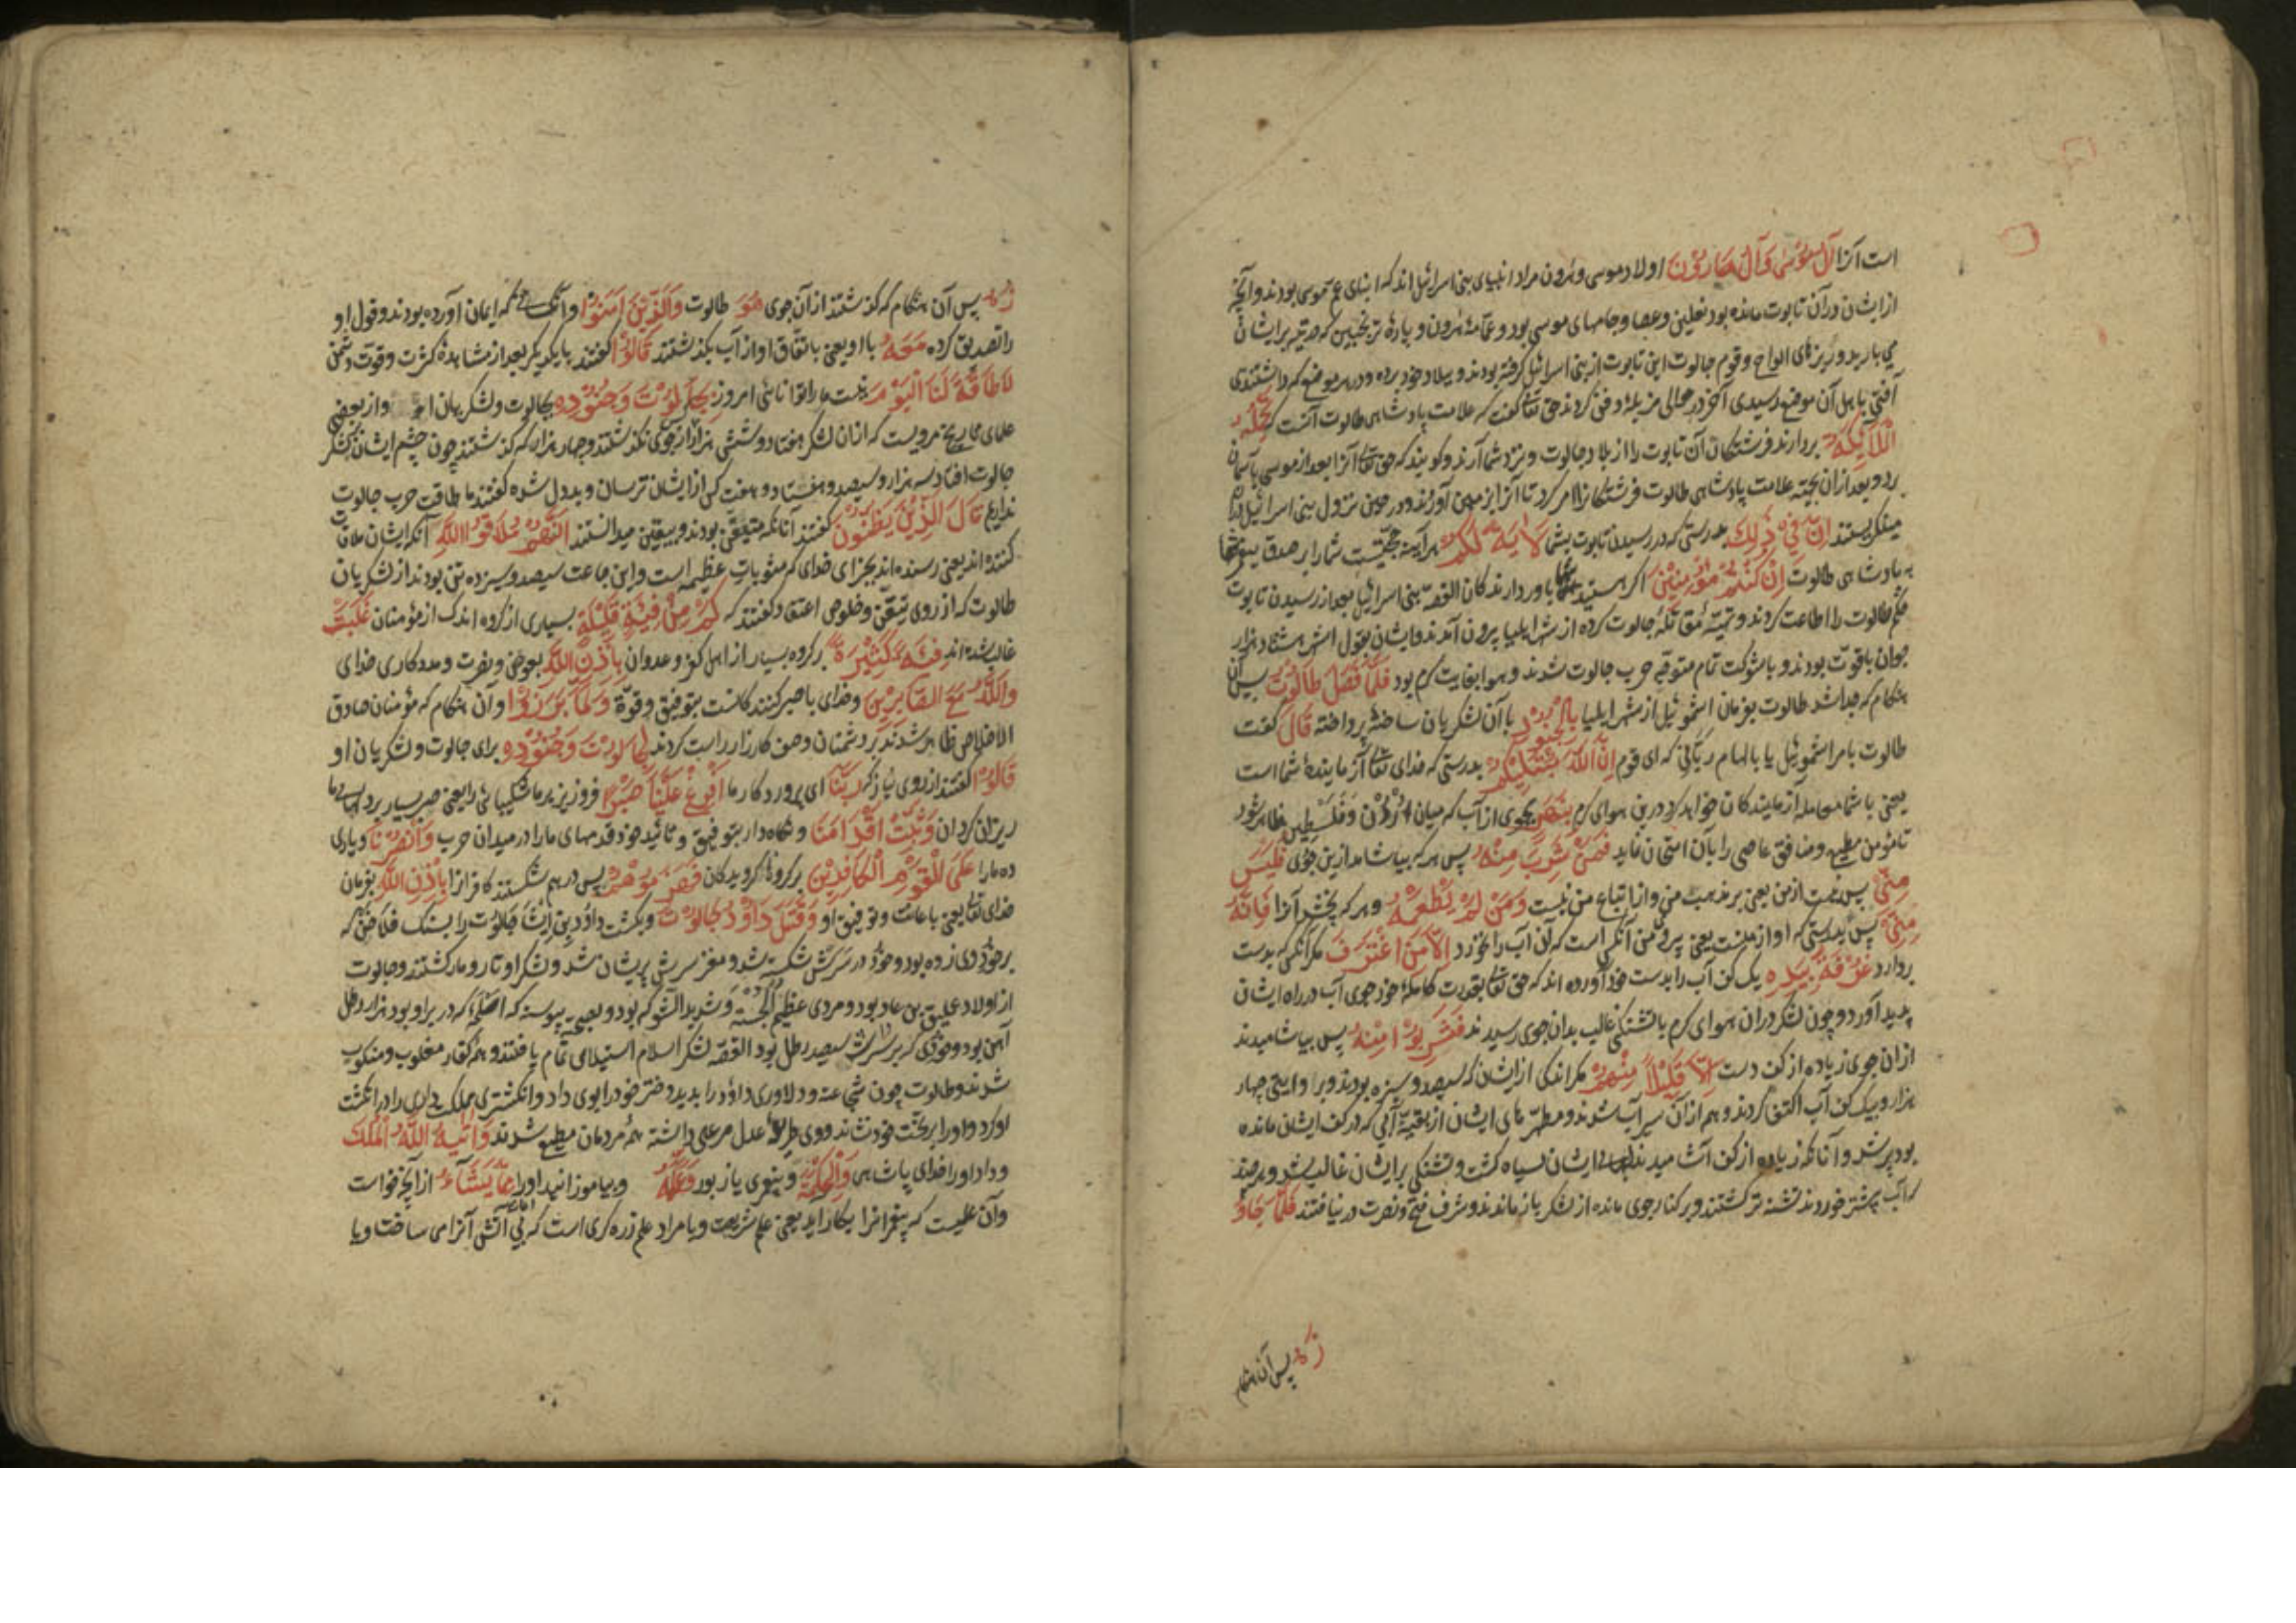 است آنرا آل موسی وآل هارون اولاد موسی و هرون مراد انبیای بنی اسرائیل اند که ابنای عم موسی بودند وآنچه
از ایشان در آن تابوت مانده بود نعلین وعصا وجامهای موسی بود وعمامهٔ هرون و پارهٔ ترنجبین که در تیه بر ایشان
می بارید وریزهای الواح وقوم جالوت این تابوت از بنی اسرائیل کرفته بودند و ببلاد خود برده ودر هر موضع که داشتندی
آفتی باهل آن موضع رسیدی آخر در حوالی مزبلهٔ دفن کردند حق تعالی گفت که علامت پادشاهی طالوت آنست که تحمله
الملائکة بردارند فرشتکان آن تابوت را از بلاد جالوت و نزد شما آرند وکویند که حق تعالی آنرا بعد از موسی باسمان
برد وبعد از ان بجهة علامت پادشاهی طالوت فرشتکانرا امر کرد تا آنرا بزمین آوردند ودر حین نزول بنی اسرائیل درو
مینکریستند ان فی ذلک بدرستی که در رسیدن تابوت بشما لایة لکم هر آینه حجتیست شما را بر صدق پیغمبر شما
به پادشاهی طالوت ان کنتم مؤمنین اکر هستید شما باور دارندکان القصه بنی اسرائیل بعد از رسیدن تابوت
حکم طالوت را اطاعت کردند و تهیهٔ مقاتلهٔ جالوت کرده از شهر ایلیا بیرون آمدند وایشان بقول اشهر هشتاد هزار
جوان باقوت بودند و با شوکت تمام متوجه حرب جالوت شدند و هوا بغایت کرم بود فلما فصل طالوت پس آن
هنکام که جدا شد طالوت بفرمان اشموئیل از شهر ایلیا بالجنود با آن لشکریان ساخته پرداخته قال کفت
طالوت بامر اشموئیل یا بالهام ربانی که ای قوم ان الله مبتلیکم بدرستی که خدای تعالی آزمایندهٔ شما است
یعنی با شما معامله آزمایندکان خواهد کرد درین هوای کرم بنهر بجوی از آب که میان اردن و فلسطین ظاهر شود
تا مؤمن مطیع ومنافق عاصی را بآن امتحان نماید فمن شرب منه پس هر که بیاشامد ازین جوی فلیس
منی پس نیست از من یعنی بر مذهب من و از اتباع من نیست ومن لم یطعمه وهر که نچشد آنرا فانه
منی پس بدرستی که او از منست یعنی پیرو من آنکس است که ازین آب را نخورد الا من اغترف مکر آنکس که بدست
بردارد غرفة بیده یک کف آب را بدست خود آورده اند که حق تعالی بقدرت کاملهٔ خود جوی آب در راه ایشان
پدید آورد وچون لشکر دران هوای کرم با تشنکی غالب بدان جوی رسیدند فشربوا منه پس بیاشامیدند
از ان جوی زیاده از کف دست الا قلیلا منهم مکر اندکی از ایشان که سیصد وسیزده بودند وبروایتی چهار
هزار وبیک کف آب اکتفا کردند وهم از آن سیرآب شدند ومطهرهای ایشان از بقیهٔ آبی که در کف ایشان مانده
بود پر شد وآنانکه زیاده از کف آشامیدند ایشان سیاه کشت وتشنکی بر ایشان غالب شد وهرچند
که آب بیشتر خوردند تشنه تر کشتند وبر کنار جوی مانده از لشکر باز ماندند وشرف فتح ونصرت در نیافتند فلما جاو
زه پس آن هنکام
زه پس آن هنکام که کذشتند از آن جوی هو طالوت والذین امنوا وآنکسانی که ایمان آورده بودند وقول او
را تصدیق کرده معه با او یعنی باتفاق او از آب بکذشتند قالوا کفتند بایکدیکر بعد از مشاهدهٔ کثرت وقوت دشمن
لا طاقة لنا الیوم نیست ما را توانائی امروز بجالوت وجنوده بجالوت ولشکریان او واز بعضی
علمای تاریخ مرویست که از ان لشکر هفتاد وشش هزار از جوی نکذشتند وچهار هزار که کذشتند چون چشم ایشان بلشکر
جالوت افتاد سه هزار وسیصد و هشتاد و هفت کس از ایشان ترسان وبددل شده کفتند ما طاقت حرب جالوت
نداریم قال الذین یظنون کفتند آنانکه متیقن بودند وبیقین میدانستند انهم ملاقوا الله آنکه ایشان ملاقات
کننده اند یعنی رسنده اند بجزای خدای که مثوبات عظیمه است واین جماعت سیصد وسیزده تن بودند از لشکریان
طالوت که از روی تیقن وخلوص اعتقاد کفتند که کم من فئة قلیلة بسیاری از کروه اندک از مؤمنان غلبت
غالب شده اند فئة کثیرة بر کروه بسیار از اهل کفر وعدوان باذن الله بعون ونصرت ومددکاری خدای
والله مع الصابرین وخدای با صبر کنندکانست بتوفیق وقوة ولما برزوا وآن هنکام که مؤمنان صادق
الاخلاص ظاهر شدند بر دشمنان وصف کارزار راست کردند لجالوت وجنوده برای جالوت ولشکریان او
قالوا کفتند از روی نیاز که ربنا ای پروردکار ما افرغ علینا صبرا فرو ریز بر ما شکیبائی را یعنی صبر بسیار بر دلهای ما
ریزان کردان وثبت اقدامنا ونکاه دار بتوفیق وتائید خود قدمهای ما را در میدان حرب وانصرنا ویاری
ده ما را علی القوم الکافرین بر کروه ناکرویدکان فهزموهم پس درهم شکستند کافرانرا باذن الله بفرمان
خدای تعالی یعنی باعانت وتوفیق او وقتل داود جالوت وبکشت داود بن ایشا جالوت را بسنک فلاخن که
بر خود وی زده بود وخود در سرش شکسته شد ومغز سرش پریشان شد ولشکر او تار ومار کشتند وجالوت
از اولاد عملیق بن عاد بود ومردی عظیم الجثه وشدید الشوکه بود
آهن بود وخودی که بر سرش سیصد رطل بود القصه لشکر اسلام استیلای تمام یافتند وهمه کفار مغلوب ومنکوب
شدند وطالوت چون شجاعت ودلاوری داود را بدید دختر خود را بوی داد وانکشتری مملکت داری را در انکشت
او کرد واو را بر تخت خود نشاند ووی طریقهٔ عدل مرعی داشته همه مردمان مطیع شدند واتیه الله الملک
وداد او را خدای پادشاهی والحکمة وپیغمبری یا زبور وعلمه وبیاموزانید او را مما یشاء از آنچه خواست
وآن علمیست که پیغمبرانرا بکار آید یعنی علم شریعت ویا مراد علم زره کری است که بی آتش آنرا می ساخت ویا